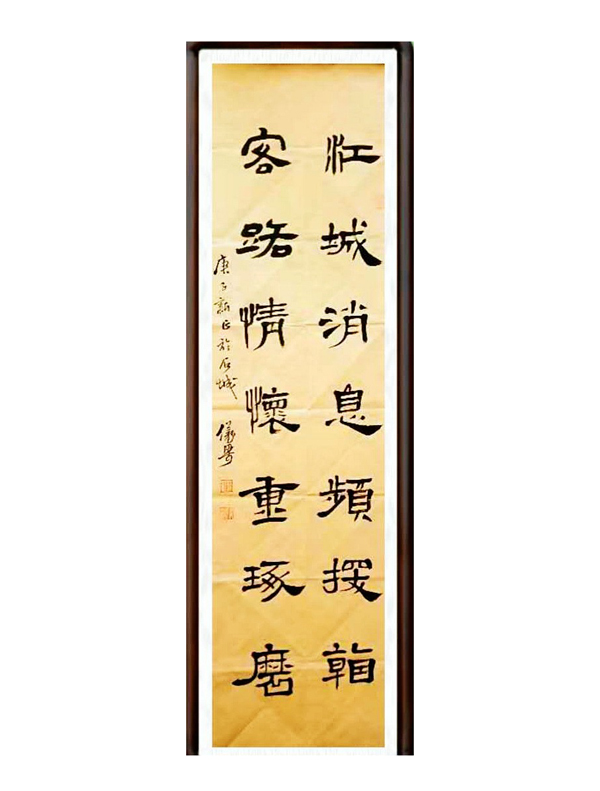 江城消息頻
客路情懷重琢磨
庚子新正於石城 儀